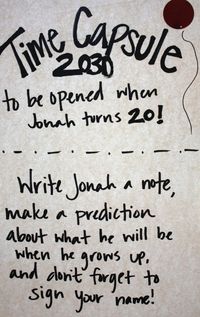 Time Capsule
2030
to be opened when
Jonah turns 20!
Write Jonah a note,
make a prediction
about what he will be
when he grows up,
and don't forget to
sign your name!